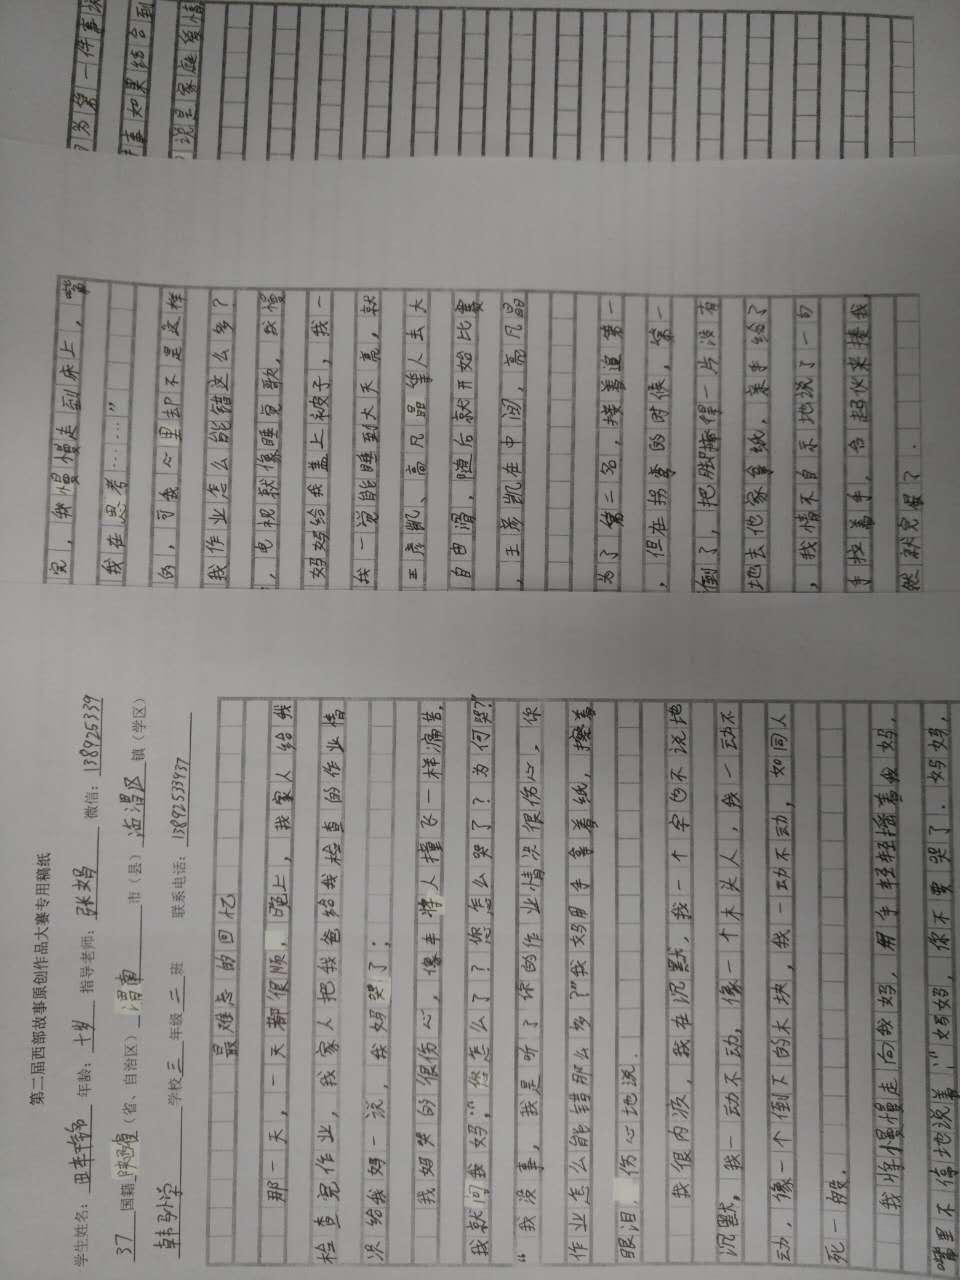 第二届西部故事原创作品大赛专用稿纸
学生姓名： 年龄：十岁 指导老师：张娟 微信：138925339
37 国籍 陕西省（省、自治区）渭南 市（县）临渭区 镇（学区）
韩马小学 学校 三 年级 二 班 联系电话：13892533937
最难忘的回忆
那一天，一天都很顺，晚上，我家人给我
检查完作业，我家人把我爸给我检查的作业情
况给我妈一说，我妈哭了；
我妈哭的很伤心，像车将人撞飞一样痛苦。
我就问我妈：“您怎么了？您怎么哭了？为何哭？”
“我没事，我是听了你的作业情况很伤心，你
作业怎么能错那么多？”我妈用手拿着纸，擦着
眼泪，伤心地说。
我很内疚，我在沉默，我一个字也不说地
沉默，我一动不动，像一个木头人，我一动不
动，像一个倒下的木块，我一动不动，如同人
死一般。
我将慢慢走向我妈，用手轻轻摇着我妈，
嘴里不停地说着：“妈妈，你不要哭了，妈妈，
完，我慢慢走到床上，嘴
我在思考……”
的，可我心里却不是这样
我作业怎么能错这么多？
，电视就像睡觉歌，我慢
妈妈给我盖上被子，我一
我一觉能睡到大天亮，就
王彦凯、高凡晶 等人去大
自由滑，随后就开始比赛
，王彦凯在中间，高凡晶
为了第二名，接着追第一
，但在拐弯的时候，第一
倒了，把脚摔得一片没有
地去他家拿纸，亲手给了
，我情不自禁地说了一句
手拉着手，合起伙来接我
然就完蛋了．
为第一件事
事如果结合到
说是家庭爱情